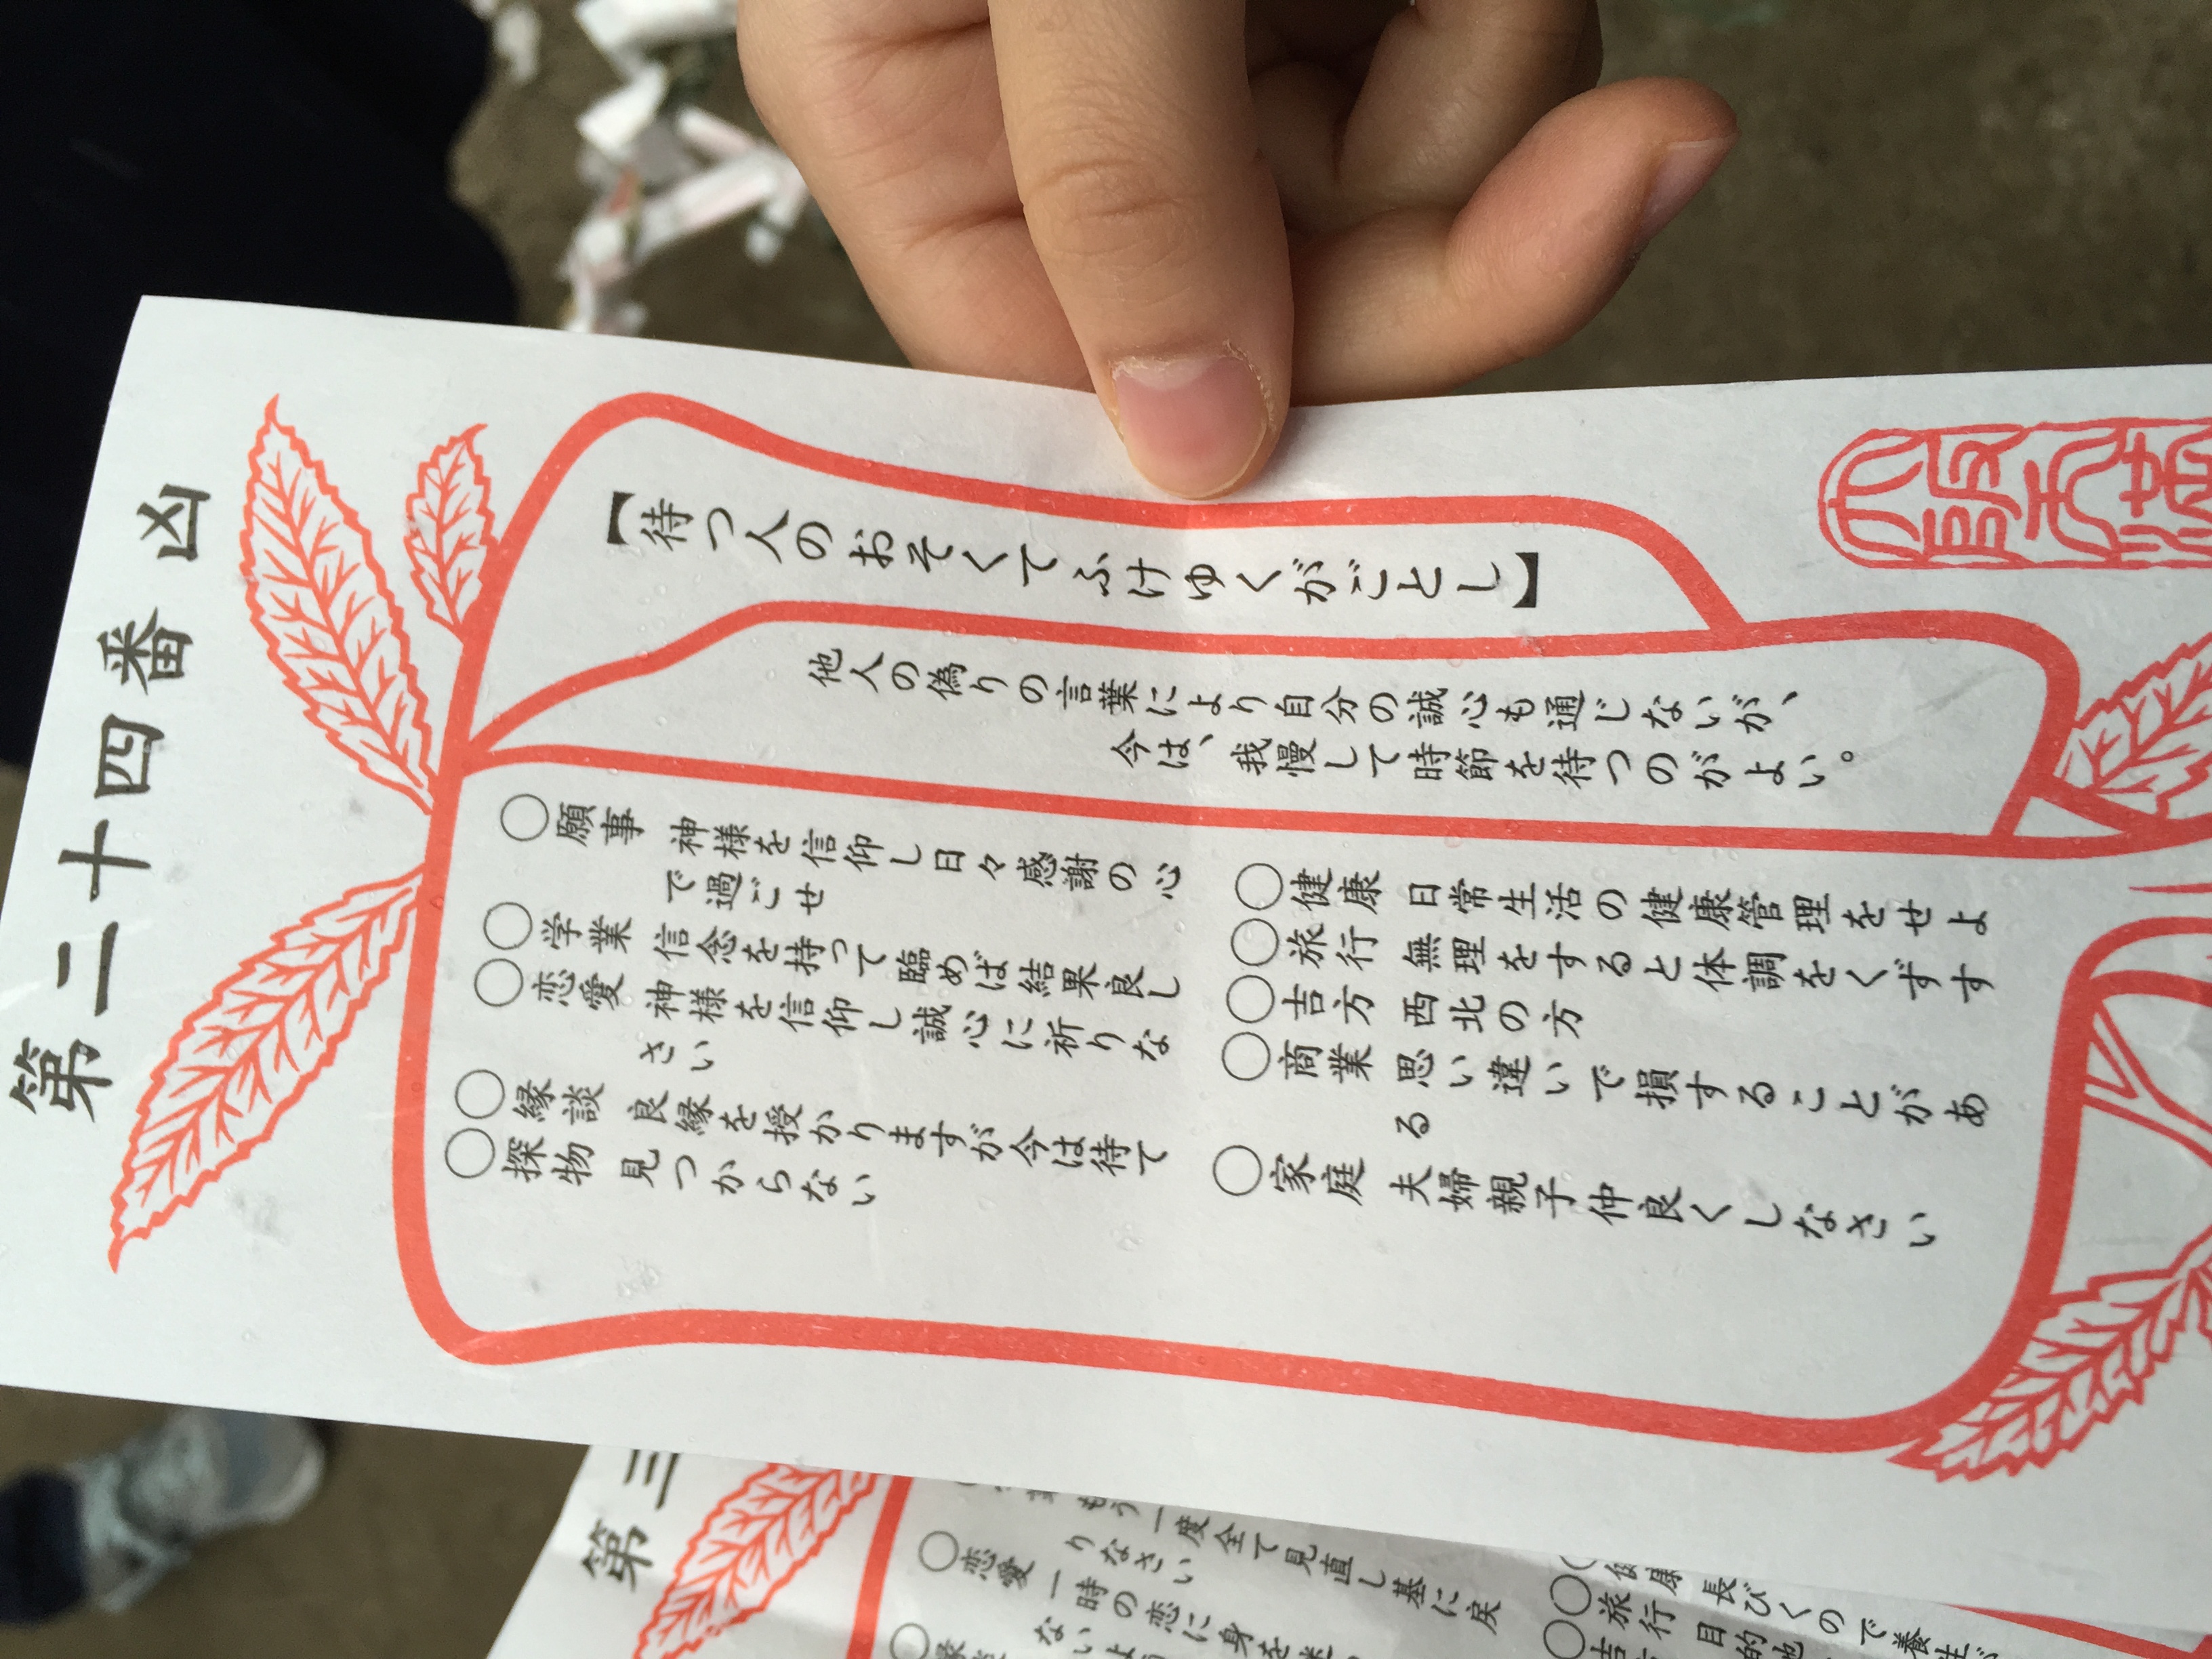 第二十四番 凶
【待つ人のおそくてふけゆくがごとし】
他人の偽りの言葉により自分の誠心も通じないが、
今は、我慢して時節を待つのがよい。
○願事 神様を信仰し日々感謝の心
で過ごせ
○学業 信念を持って臨めば結果良し
○恋愛 神様を信仰し誠心に祈りな
さい
○縁談 良縁を授かりますが今は待て
○探物 見つからない
○健康 日常生活の健康管理をせよ
○旅行 無理をすると体調をくずす
○吉方 西北の方
○商業 思い違いで損することがあ
る
○家庭 夫婦親子仲良くしなさい
第三
もう一度全て見直し基に戻
りなさい
○恋愛 一時の恋に身を
ないよ
長びくので養生
○旅行 目的地